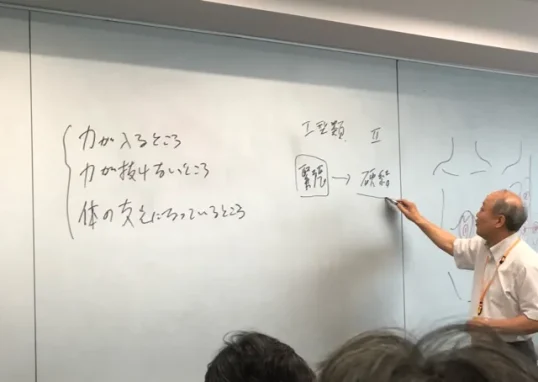 力が入るところ
力が抜けないところ
体の支えになっているところ
I 型類 II
緊張 → 硬結